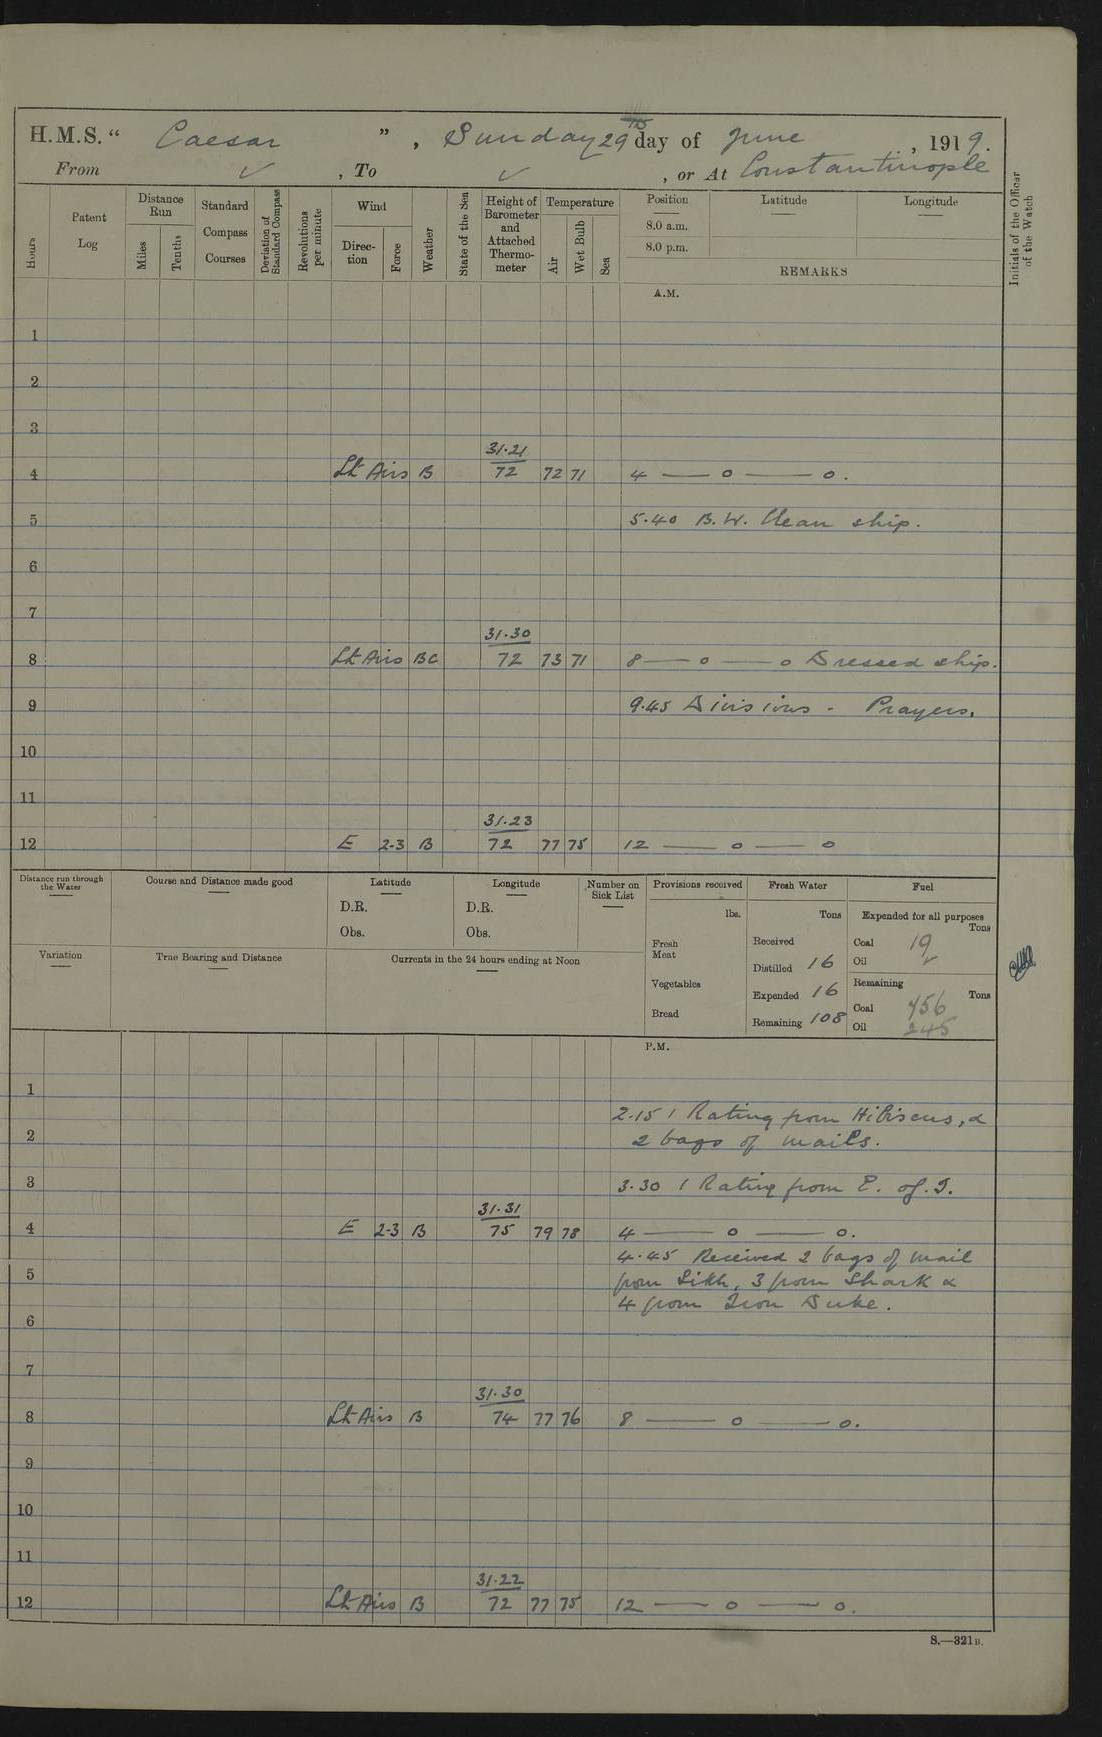 H.M.S. "Caesar", Sunday 29th day of June, 1919.
From ✓, To ✓, or At Constantinople
Hours
Patent Log
Distance Run
Miles
Tenths
Standard Compass Courses
Deviation of Standard Compass
Revolutions per minute
Wind
Direction
Force
Weather
State of the Sea
Height of Barometer and Attached Thermometer
Temperature
Air
Wet Bulb
Sea
Position Latitude Longitude
8.0 a.m.
8.0 p.m.
REMARKS
Initials of the Officer of the Watch
A.M.
1
2
3
31.21
4 Lt Airs B 72 72 71 4 — o — o.
5 5.40 B.W. Clean ship.
6
7
31.30
8 Lt Airs BC 72 73 71 8 — o — o Dressed ship.
9 9.45 Divisions - Prayers.
10
11
31.23
12 E 2-3 B 72 77 75 12 — o — o
Distance run through the Water
Course and Distance made good
Latitude
D.R.
Obs.
Longitude
D.R.
Obs.
Number on Sick List
Provisions received
lbs.
Fresh Meat
Vegetables
Bread
Fresh Water
Tons
Received
Distilled 16
Expended 16
Remaining 108
Fuel
Expended for all purposes
Tons
Coal 19
Oil ✓
Remaining
Tons
Coal 456
Oil 245
Variation
True Bearing and Distance
Currents in the 24 hours ending at Noon
P.M.
1
2.15 1 Rating from Hibiscus, &
2 2 bags of mails.
3 3.30 1 Rating from E. of I.
31.31
4 E 2-3 B 75 79 78 4 — o — o.
4.45 Received 2 bags of mail
5 from Sikh, 3 from Shark &
4 from Iron Duke.
6
7
31.30
8 Lt Airs B 74 77 76 8 — o — o.
9
10
11
31.22
12 Lt Airs B 72 77 75 12 — o — o.
S.—321B.